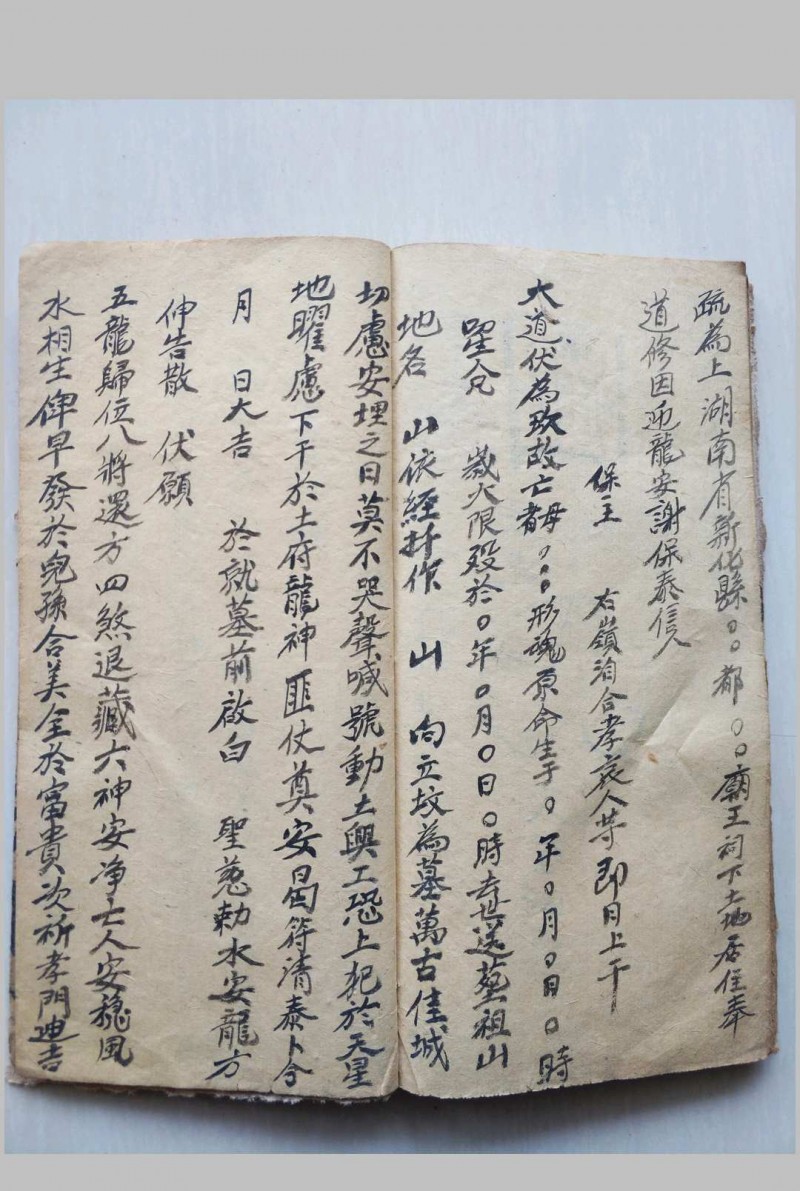 疏為上湖南省新化縣〇〇都〇〇廟王祠下土地居住奉
道修因迎龍安謝保泰信人
保主 右領洎合孝哀人等即日上干
大道伏為故亡者母〇〇〇形魂原命生于〇年〇月〇日〇時
歲大限歿於〇年〇月〇日〇時去世送葬祖山
地名 山依經扦作 山 向立坟為墓萬古佳城
切慮安埋之日莫不哭聲喊號動土興工恐上犯於天星
地曜慮下干於土府龍神匪仗奠安曷符清泰卜今
月 日大吉 於就墓前啟白 聖慈勅水安龍方
伸告散 伏願
五龍歸位八將還方四煞退藏六神安净亡人安穩風
水相生俾早發於兒孫合美全於富貴次祈孝門迪吉